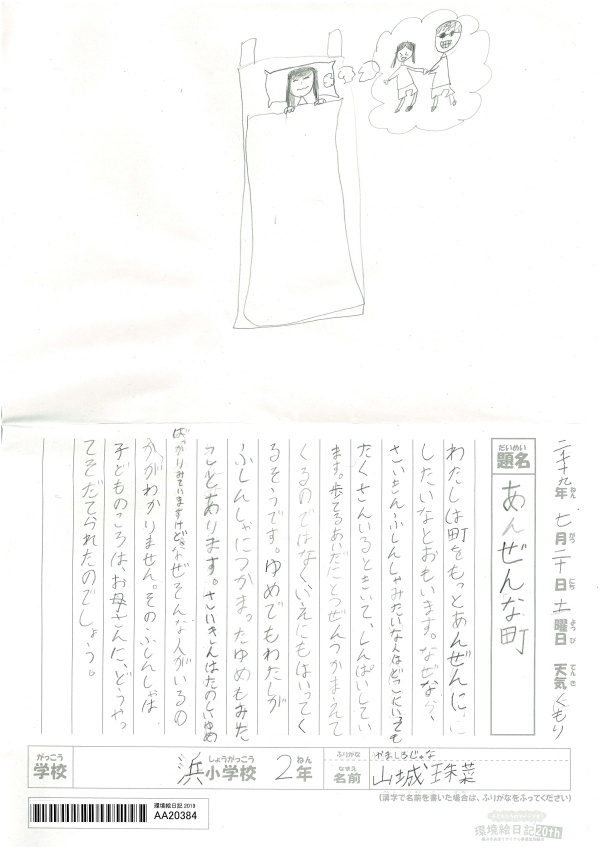 二〇一九年 七月二十日 土曜日 天気 くもり
ねん がつ にち ようび てんき
だいめい
題名 あんぜんな町
わたしは町をもっとあんぜんに、に
したいなとおもいます。なぜなら、
さいきんふしんしゃみたいな人はどこにいても
たくさんいるときいて、しんぱいしてい
ます。歩てるあいだにとつぜんつかまえて
くるのではなくいえにもはいってく
るそうです。ゆめでもわたしが
ふしんしゃにつかまったゆめもみた
ことあります。さいきんはたのしいゆめ
ばっかりみていますけどなぜそんな人がいるの
かがわかりません。そのふしんしゃは、
子どものころは、お母さんに、どうやっ
てそだてられたのでしょう。
がっこう
学校 浜小学校 2年
しょうがっこう ねん
ふりがな やましろじゅな
なまえ
名前 山城珠菜
(漢字で名前を書いた場合は、ふりがなをふってください)
環境絵日記 2019
AA20384
環境絵日記20th